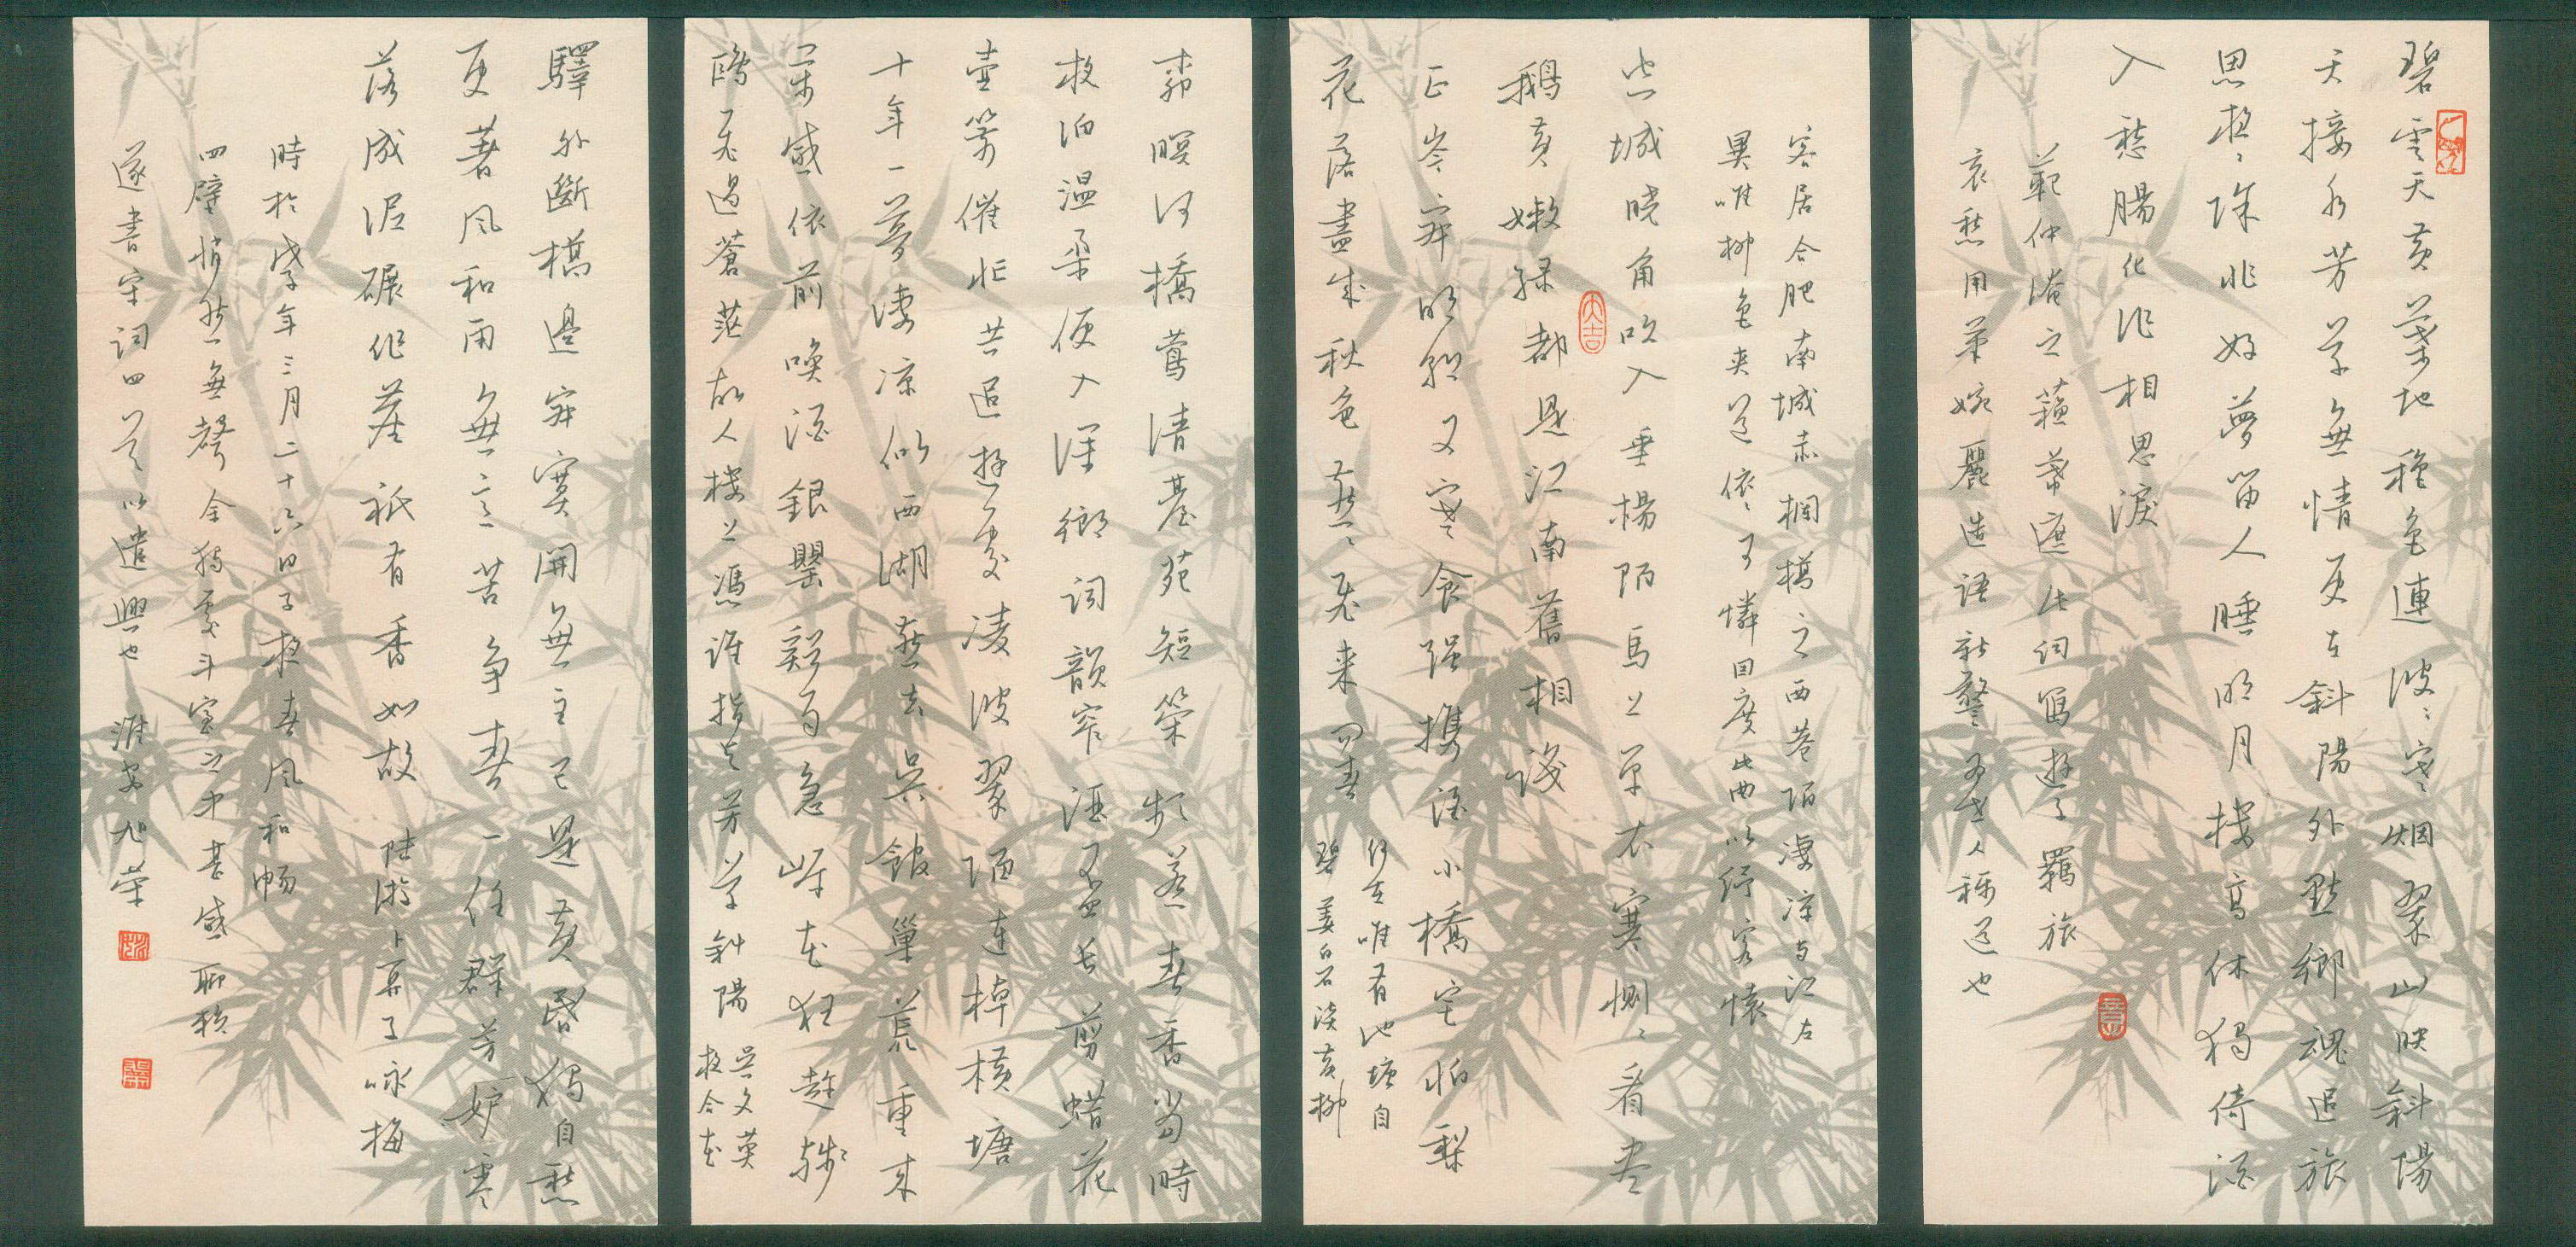 碧雲天黃葉地穐色連波〻寒烟翠山映斜陽
天接水芳草無情更在斜陽外黯鄉魂追旅
思夜〻除非好夢留人睡明月樓高休獨倚酒
入愁腸化作相思淚
範仲淹之蘇幕遮此詞寫遊子羈旅
哀愁用筆婉麗造語新警多爲人稱道也
客居合肥南城赤欄橋之西巷陌淒涼与江左
異唯柳色夾道依〻可憐因度此曲以紓客懷
空城曉角吹入垂楊陌馬上單衣寒惻〻看盡
鵝黃嫩綠都是江南舊相識
大吉
正岑寂明朝又寒食强攜酒小橋宅怕梨
花落盡成秋色燕〻飛來問春
何在唯有池塘自
碧 姜白石淡黃柳
柳暝河橋鶯清臺苑短策頻惹春香當時
夜泊溫柔便入深鄉詞韻窄酒杯長剪蜡花
壺箭催忙共追遊處凌波翠陌連棹橫塘
十年一夢淒凉似西湖燕去吳館巢荒重來
万感依前喚酒銀罌谿雨急岸花狂趁殘
鴉飛過蒼茫故人樓上憑誰指与芳草斜陽
吳文英
夜合花
驛外斷橋邊寂寞開無主已是黃昏獨自愁
更著風和雨無意苦爭春一任群芳妒零
落成泥碾作塵祇有香如故 陸游卜算子咏梅
時於戊子年三月二十六日子夜春風和暢
四壁悄然無聲余獨處斗室之中甚感聊賴
遂書宋詞四首以遣興也 淮安旭榮